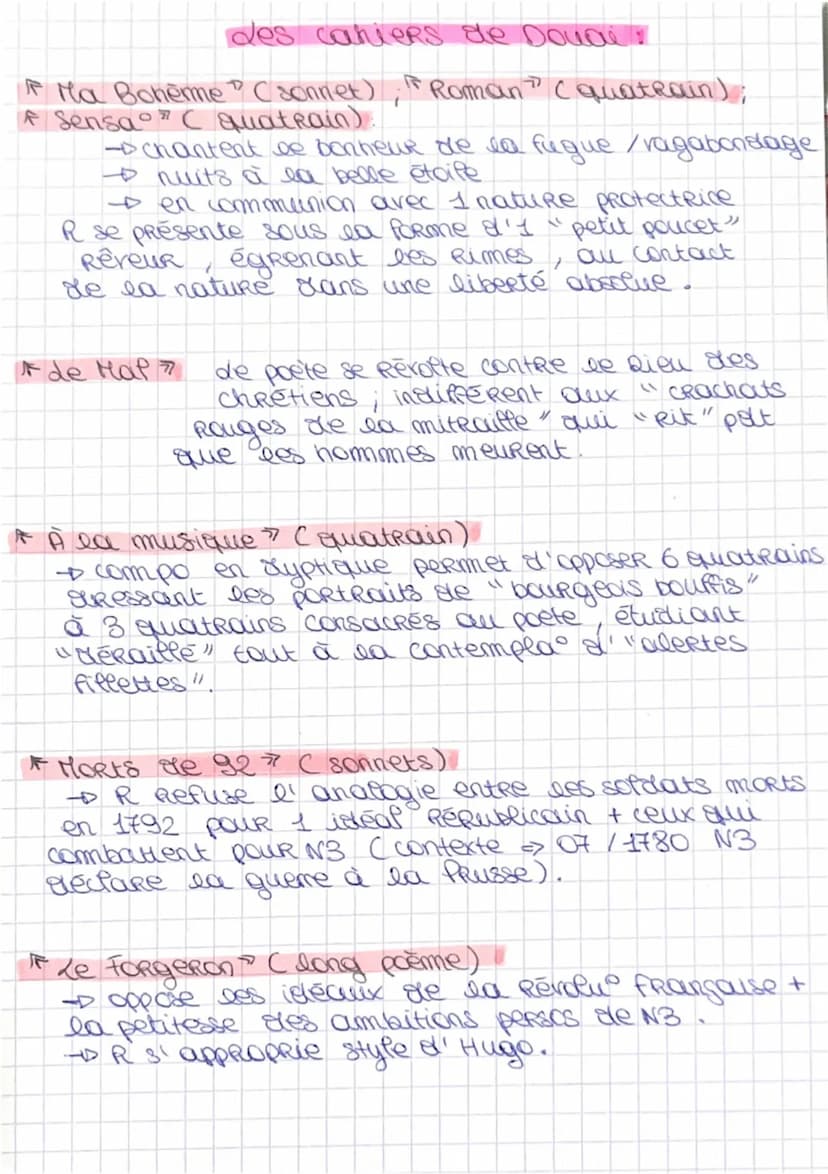 Les cahiers de Douai :
« Ma Bohème » (sonnet) ; « Roman » (quatrain) ;
« Sensa° » (quatrain)
→ chantent le bonheur de la fugue / vagabondage
→ nuits à la belle étoile
→ en communion avec 1 nature protectrice
R se présente sous la forme d'1 "petit poucet"
rêveur, égrenant les rimes, au contact
de la nature dans une liberté absolue.
« Le Mal » Le poète se révolte contre le Dieu des
chrétiens, indifférent aux "crachats
rouges de la mitraille" qui "rit" pdt
que les hommes meurent.
« À la musique » (quatrain)
→ compo en dyptique permet d'opposer 6 quatrains
dressant les portraits de "bourgeois bouffis"
à 3 quatrains consacrés au poète, étudiant
"déraillé" tout à la contempla° d' "alertes
fillettes".
« Morts de 92 » (sonnets)
→ R refuse l'analogie entre les soldats morts
en 1792 pour 1 idéal républicain + ceux qui
combattent pour N3 (contexte ⇒ 07/1780 N3
déclare la guerre à la Prusse).
« Le Forgeron » (long poème)
→ oppose les idéaux de la Révolu° Française +
la petitesse des ambitions persos de N3.
→ R s'approprie style d'Hugo.